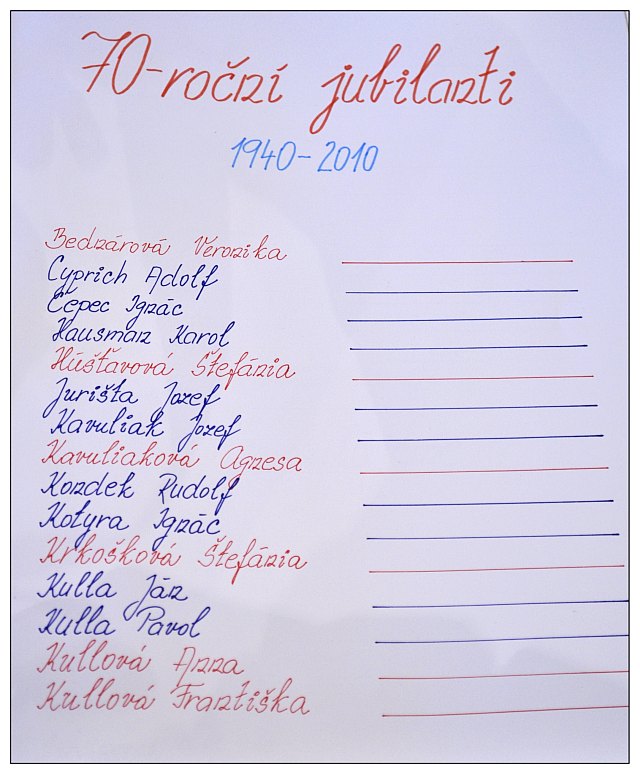 70-roční jubilanti
1940-2010
Bednárová Veronika
Cyprich Adolf
Čepec Ignác
Hausman Karol
Húšťavová Štefánia
Jurišta Jozef
Kavuliak Jozef
Kavuliaková Agnesa
Kondek Rudolf
Kotyra Ignác
Krkošková Štefánia
Kulla Ján
Kulla Pavol
Kullová Anna
Kullová Františka